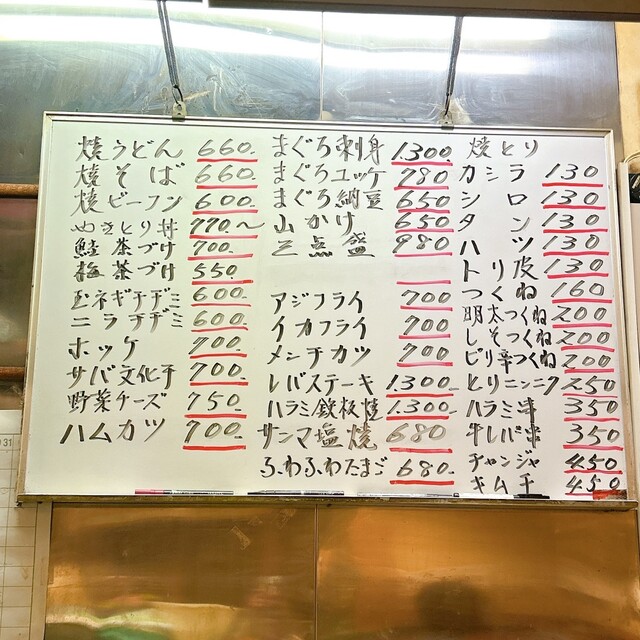 焼うどん 660.
焼そば 660.
焼ビーフン 600.
やきとり丼 770.〜
鮭茶づけ 700.
梅茶づけ 550.
玉ネギチヂミ 600.
ニラチヂミ 600.
ホッケ 700.
サバ文化干 700.
野菜チーズ 750.
ハムカツ 700.
まぐろ刺身 1.300.
まぐろユッケ 780.
まぐろ納豆 650
山かけ 650
二点盛 980
アジフライ 700
イカフライ 700
メンチカツ 700
レバステーキ 1.300.
ハラミ鉄板焼 1.300.
サンマ塩焼 680
ふわふわたまご 680.
焼とり
カシラ 130
シロ 130
タン 130
ハツ 130
トリ皮 130
つくね 160
明太つくね 200
しそつくね 200
ピリ辛つくね 200
とりニンニク 250
ハラミ串 350
牛レバ串 350
チャンジャ 450
キムチ 450
31